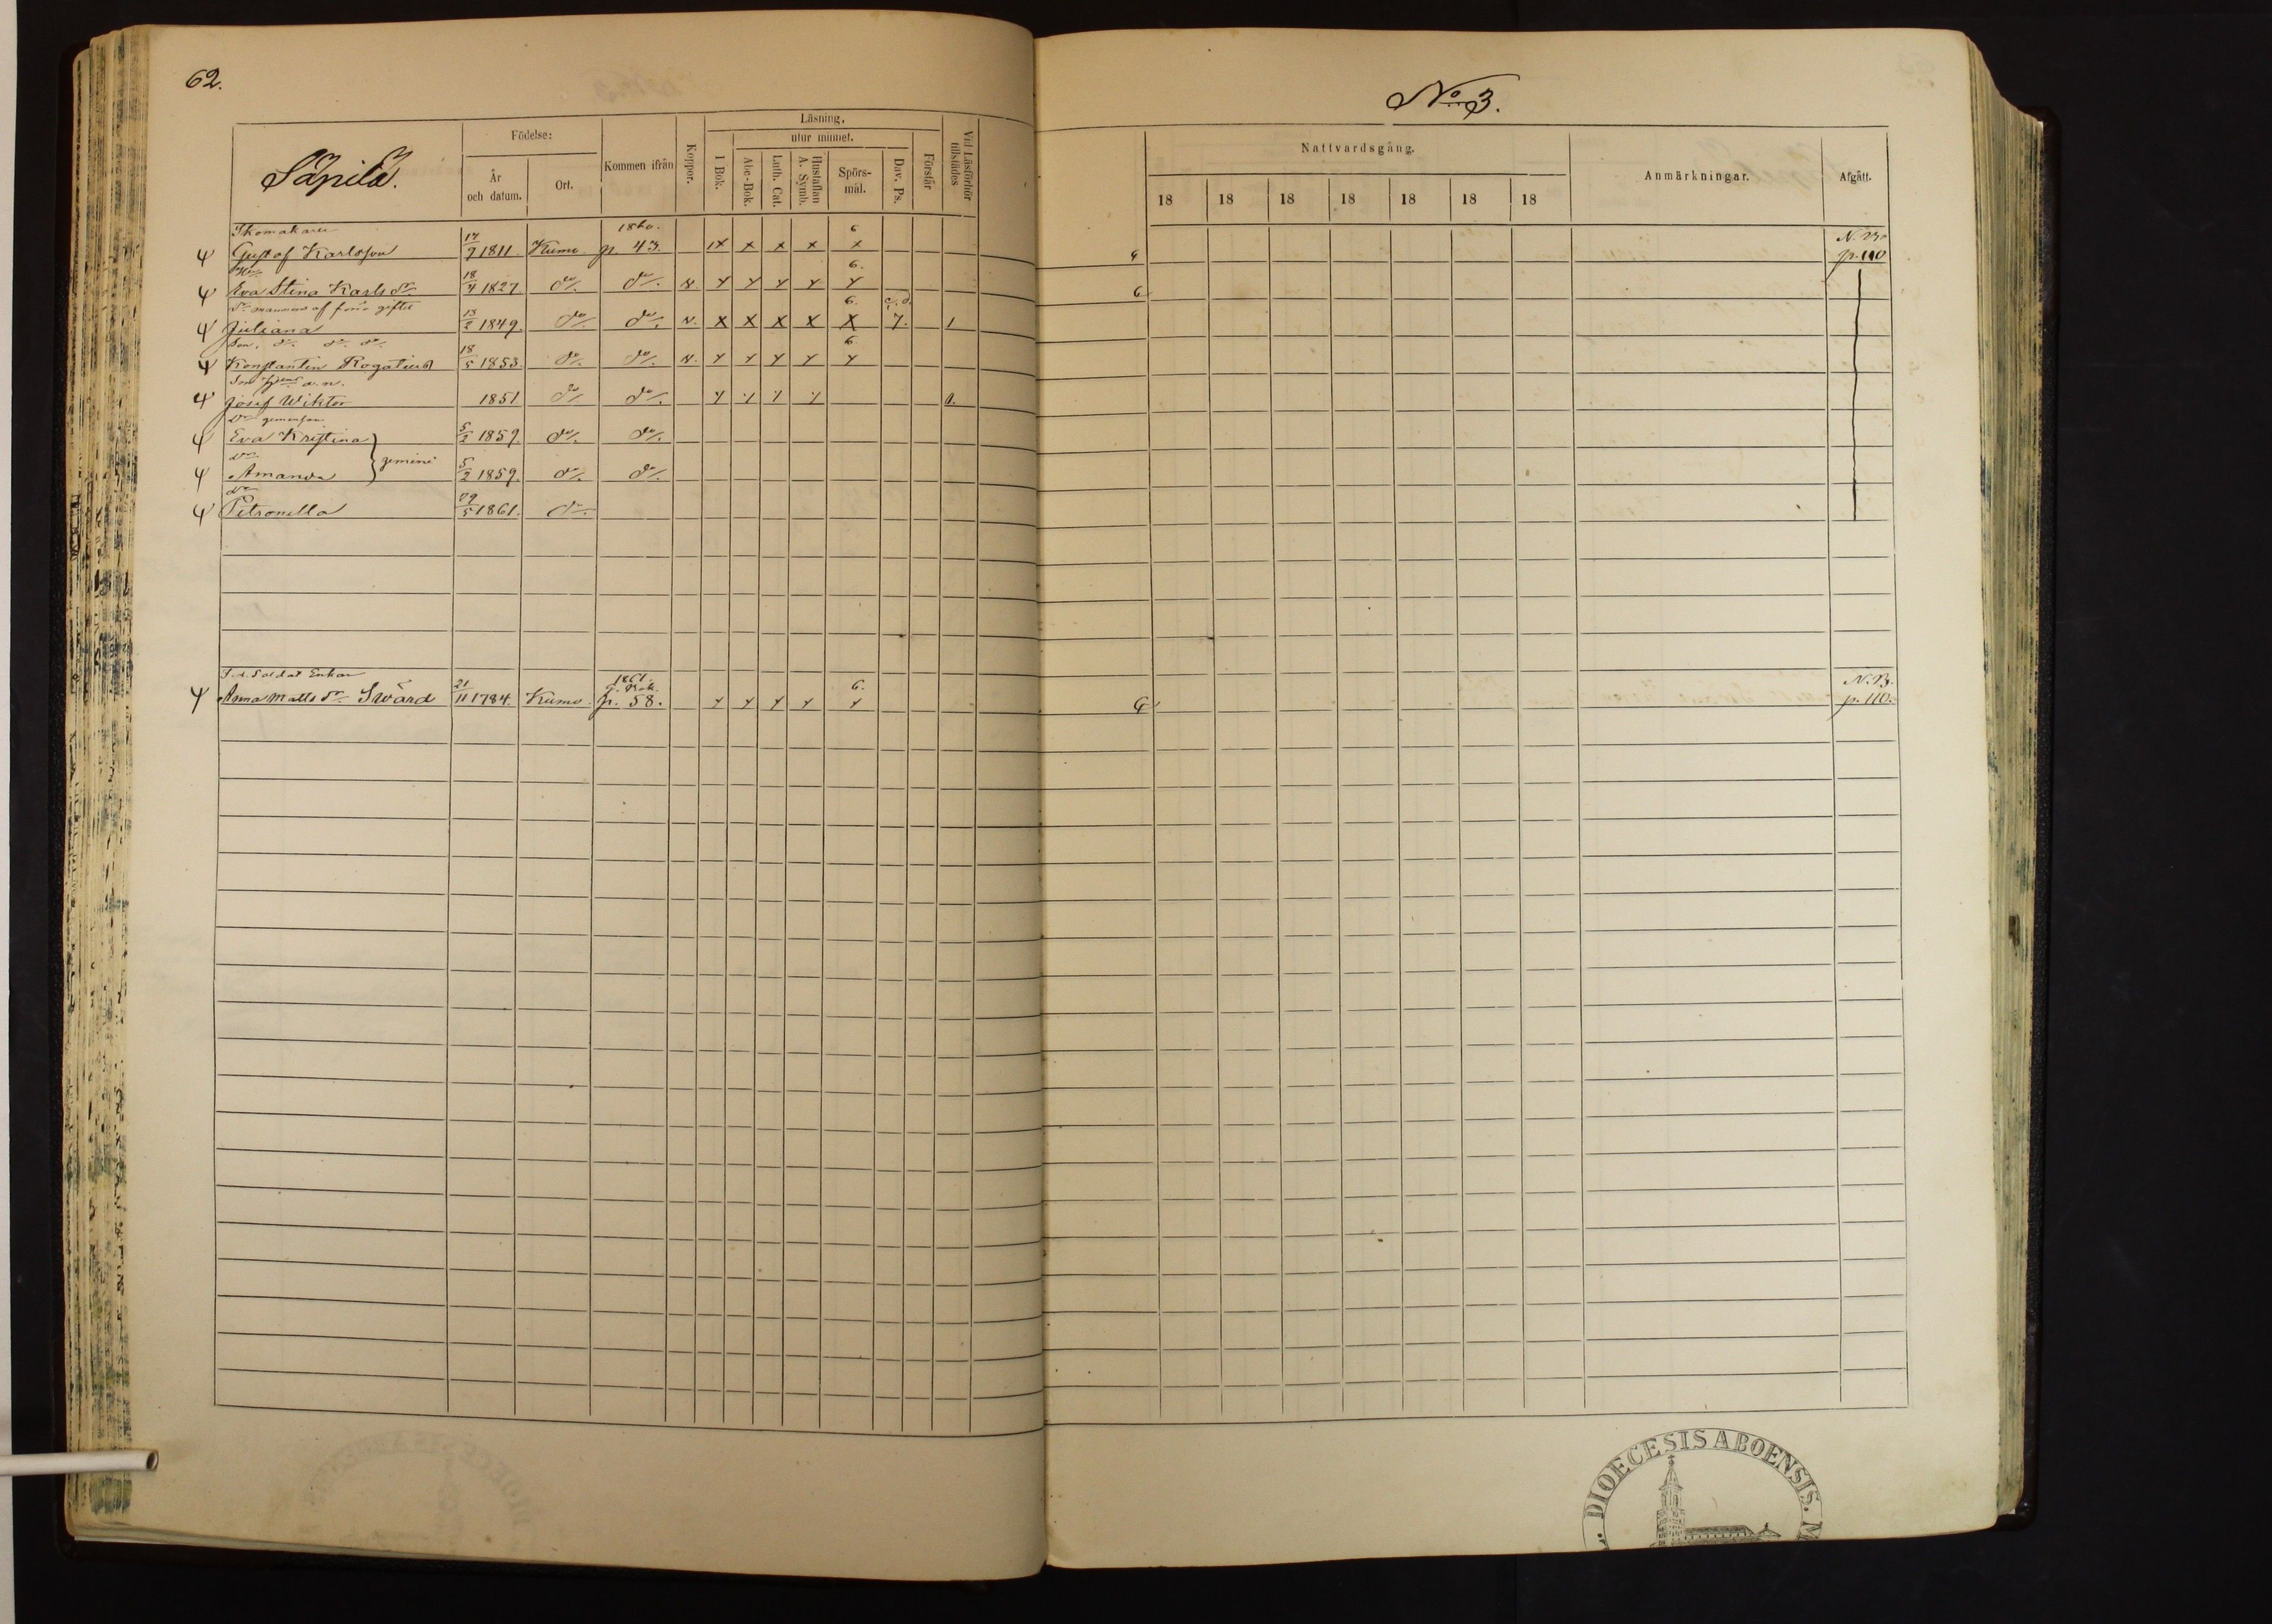 62.
No 3.
Säpilä.
Födelse:
År
och datum.
Ort.
Kommen ifrån
Koppor.
Läsning.
utur minnet.
I Bok.
Abc-Bok.
Luth. Cat.
Hustaflan
A. Symb.
Spörs-
mål.
Dav. Ps.
Förstår
Vid Läsförhör
tillstädes
Nattvardsgång.
18 18 18 18 18 18 18
Anmärkningar.
Afgått.
Skomakare 1860. 6 N. 23
ψ Gustaf Karlsson 17/9 1811 Kumo p. 43. x x x x x p. 110
Hu 6.
ψ Eva Stina Karls dr 18/4 1827 do do
6. c. d.
ψ Juliana 13/2 1849 do do v. x x x x x 7. 1
Son. do do do 6
ψ Konstantin Rogatius 18/5 1853 do do v.
ψ Josef Wiktor 1851 do do 1.
ψ Eva Kristina 5/2 1859 do do
gemini
ψ Amanda 5/2 1859. do do
ψ Petronella 1861. do
F. d. Soldat Enkan 1861. 6. N. 23.
ψ Anna Matts dr Swärd 21/11 1784. Kumo p. 58. p. 110.
DIOECESIS ABOENSIS. M